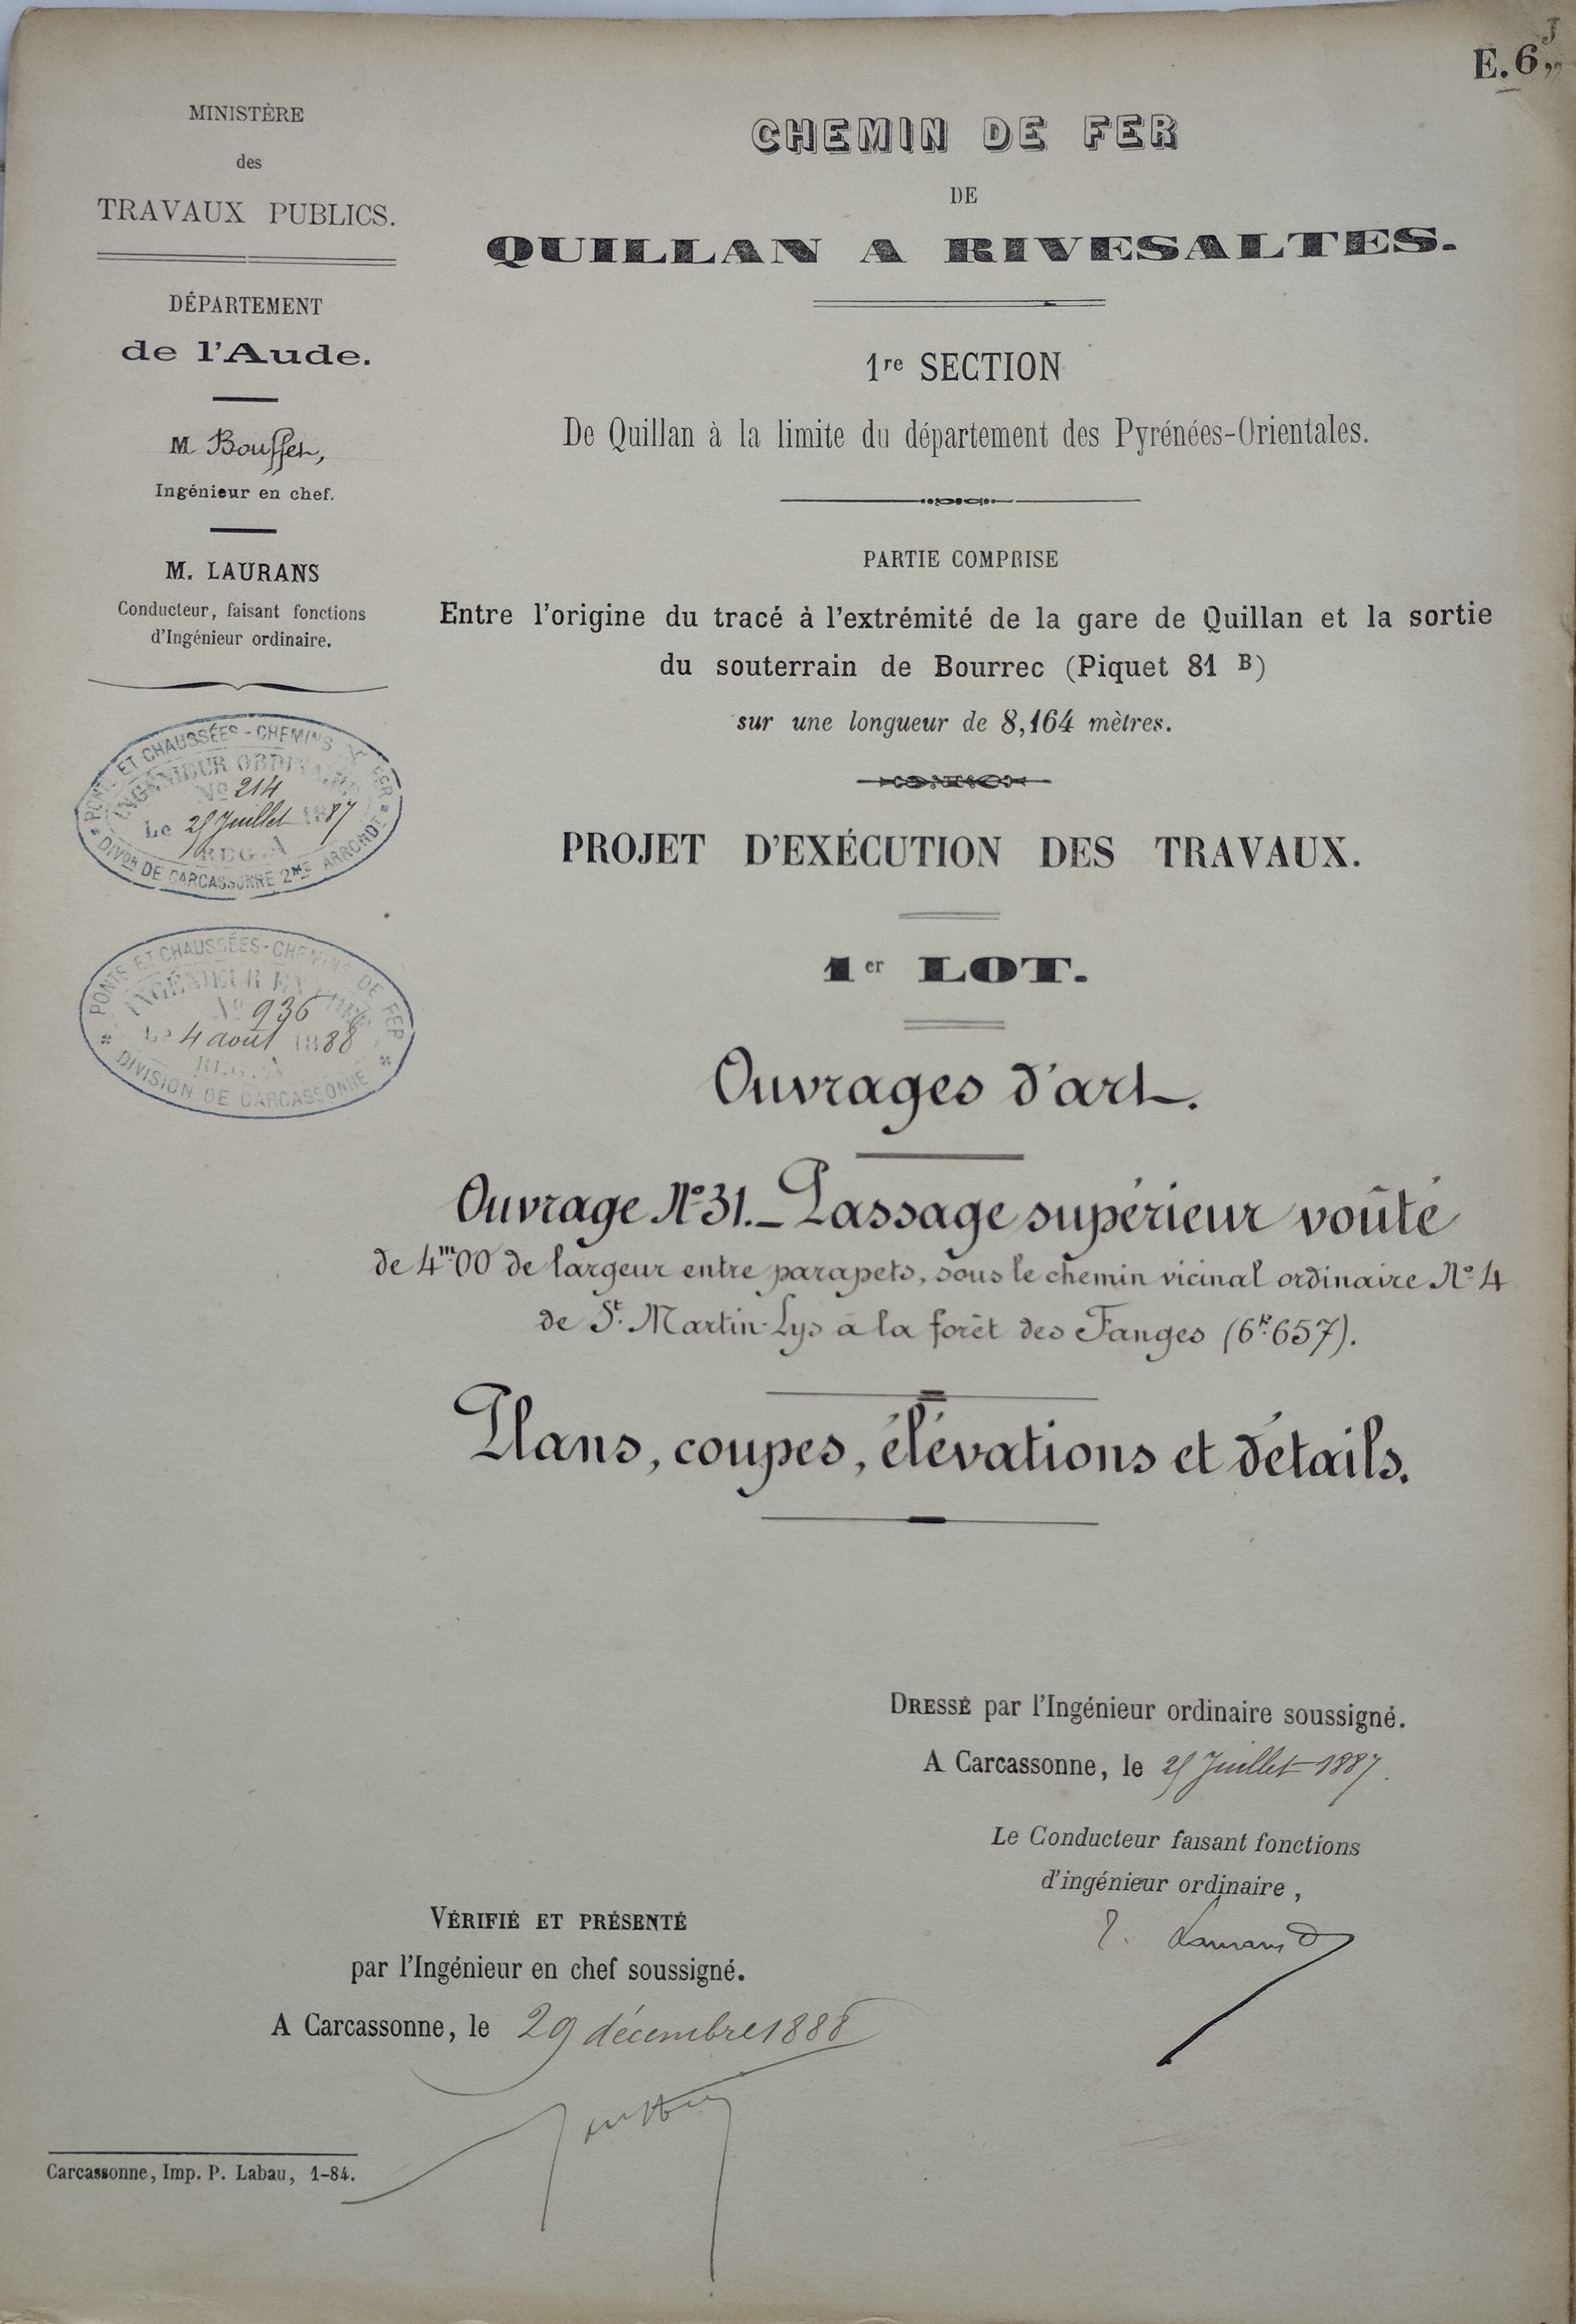 E. 6 J
MINISTÈRE
des
TRAVAUX PUBLICS.
DÉPARTEMENT
de l'Aude.
M. Bouffet,
Ingénieur en chef.
M. LAURANS
Conducteur, faisant fonctions
d'Ingénieur ordinaire.
PONTS ET CHAUSSÉES - CHEMINS DE FER
INGÉNIEUR ORDINAIRE
No 214
Le 25 Juillet 1887
REG. A
DIVon DE CARCASSONNE 2Me ARRONDT
PONTS ET CHAUSSÉES - CHEMINS DE FER
INGÉNIEUR EN CHEF
No 936
Le 4 août 1888
REG. A
DIVISION DE CARCASSONNE
CHEMIN DE FER
DE
QUILLAN A RIVESALTES.
1re SECTION
De Quillan à la limite du département des Pyrénées-Orientales.
PARTIE COMPRISE
Entre l'origine du tracé à l'extrémité de la gare de Quillan et la sortie
du souterrain de Bourrec (Piquet 81 B)
sur une longueur de 8,164 mètres.
PROJET D'EXÉCUTION DES TRAVAUX.
1er LOT.
Ouvrages d'art.
Ouvrage No 31. _ Passage supérieur voûté
de 4m.00 de largeur entre parapets, sous le chemin vicinal ordinaire No 4
de St. Martin-Lys à la forêt des Fanges (6k.657).
Plans, coupes, élévations et détails.
DRESSÉ par l'Ingénieur ordinaire soussigné.
A Carcassonne, le 25 Juillet 1887.
Le Conducteur faisant fonctions
d'ingénieur ordinaire,
VÉRIFIÉ ET PRÉSENTÉ
par l'Ingénieur en chef soussigné.
A Carcassonne, le 29 décembre 1888
Carcassonne, Imp. P. Labau, 1-84.